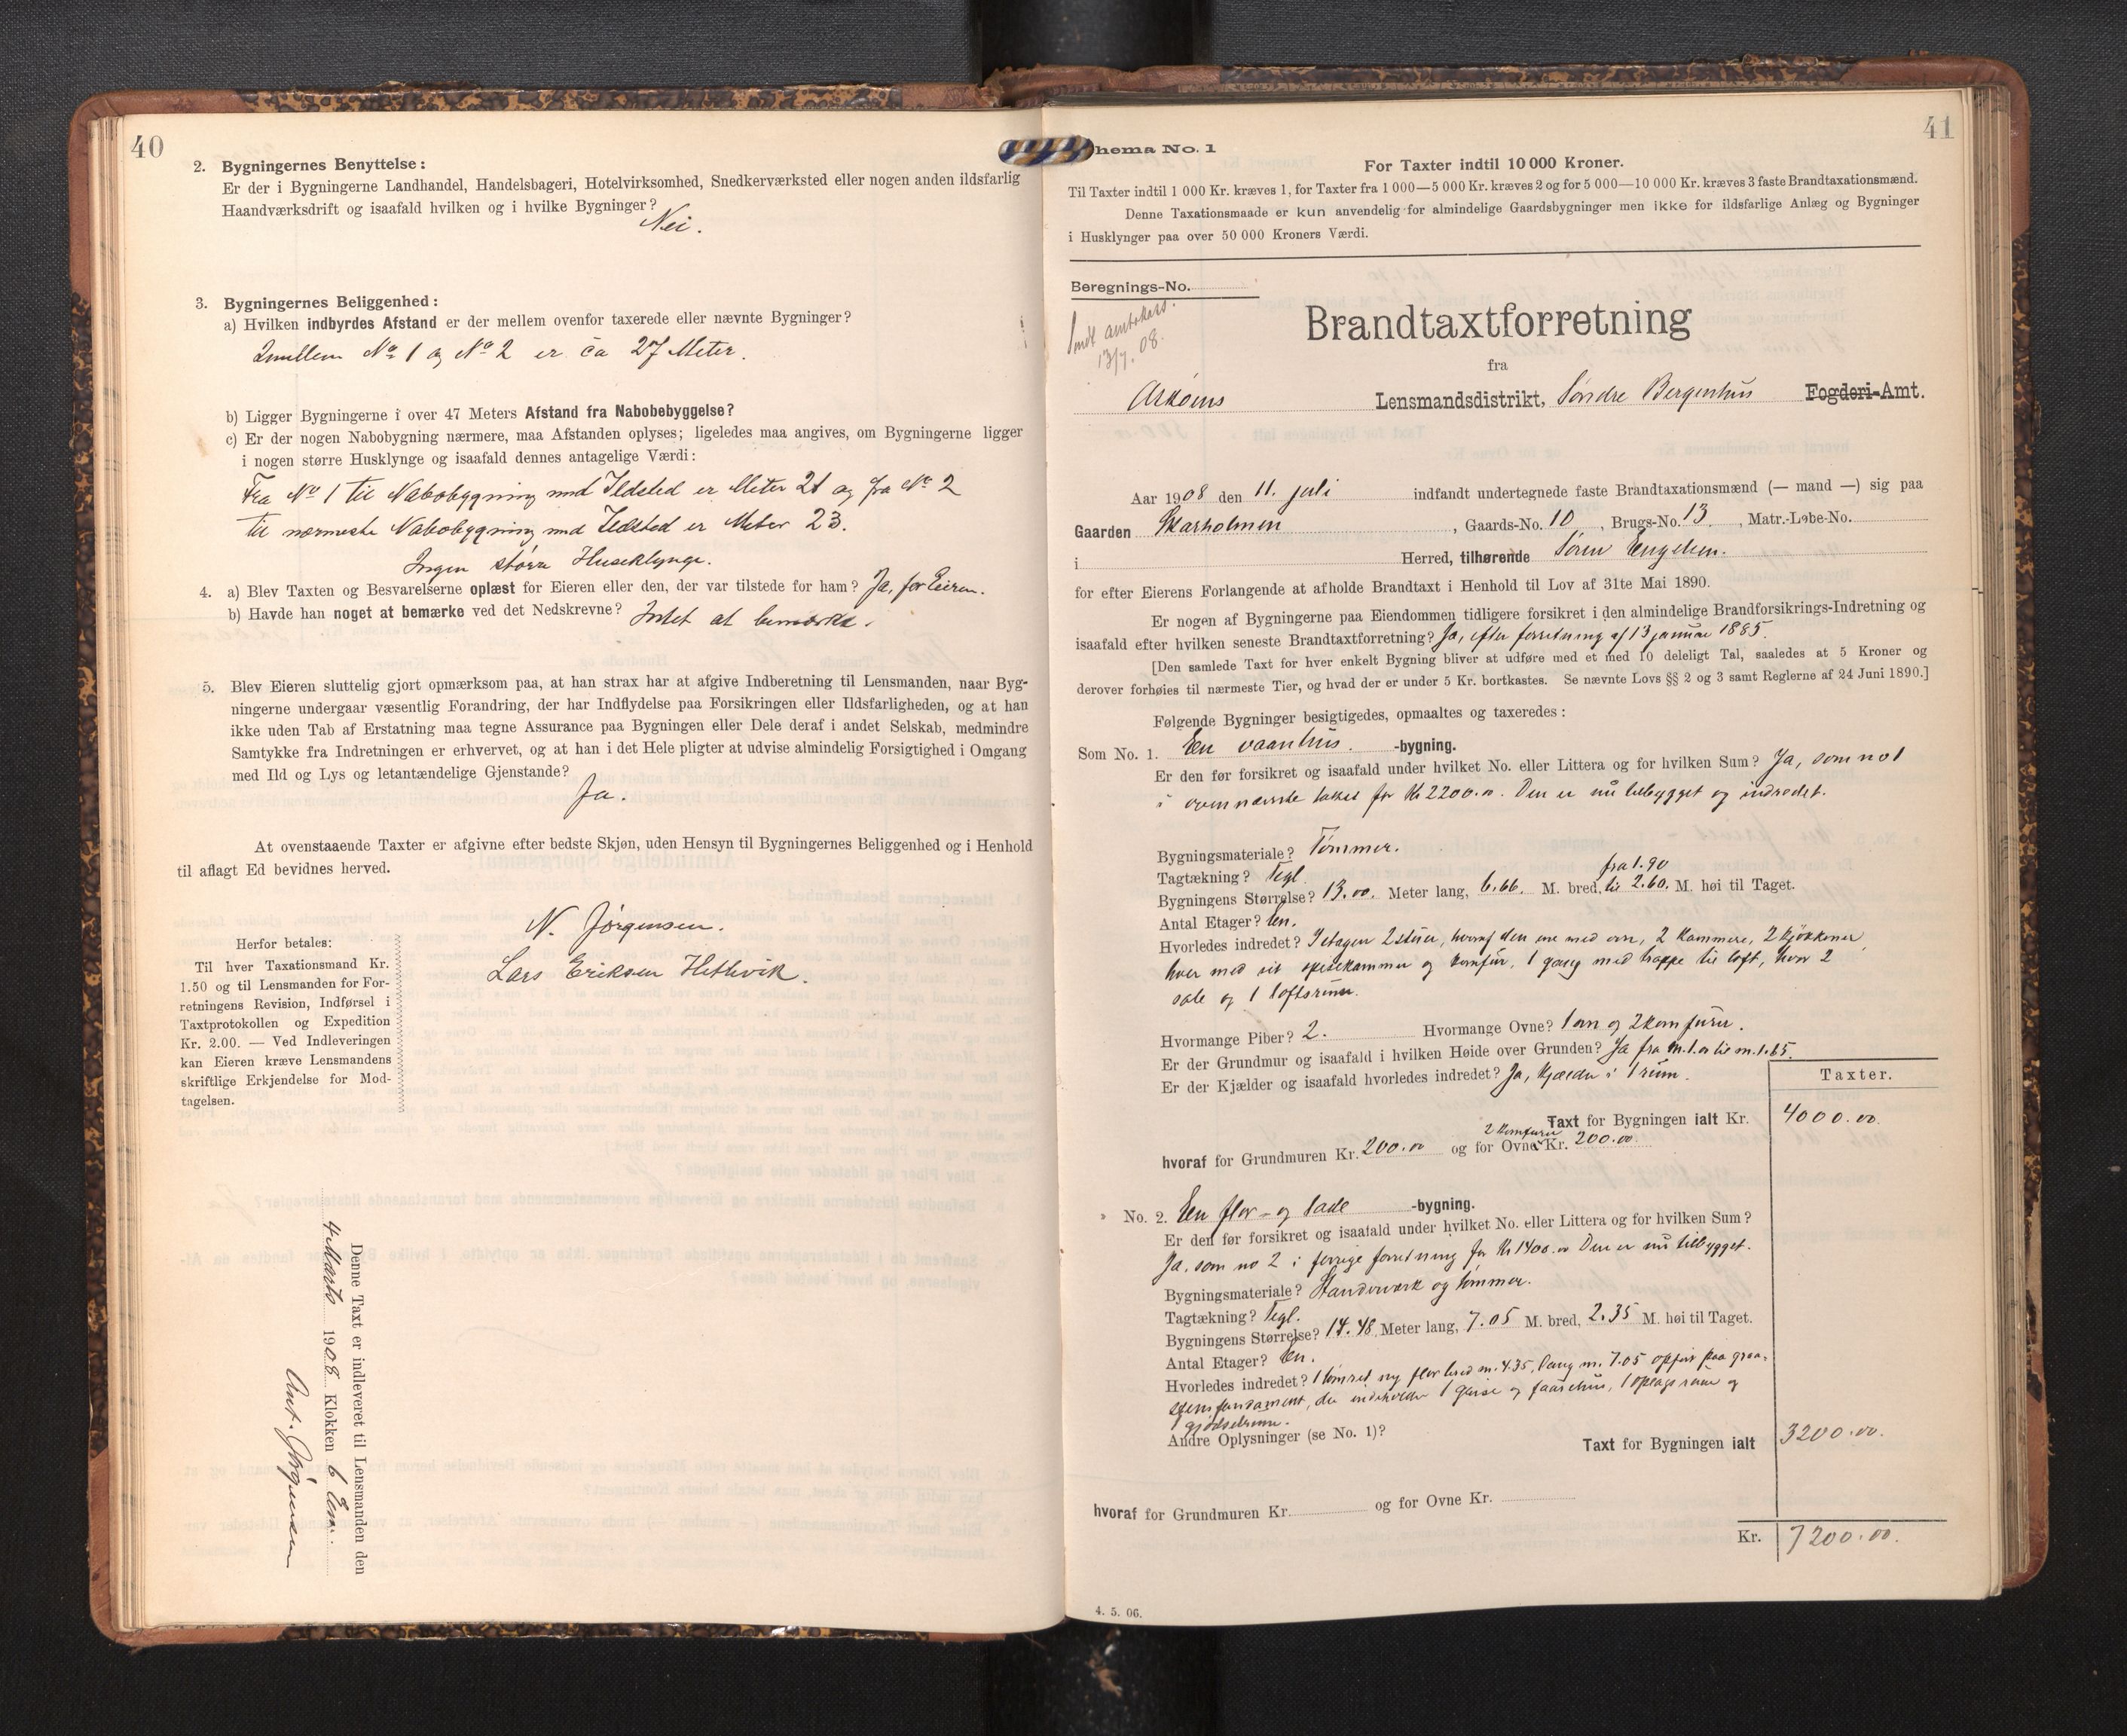 40
2. Bygningernes Benyttelse:
Er der i Bygningerne Landhandel, Handelsbageri, Hotelvirksomhed, Snedkerværksted eller nogen anden ildsfarlig
Haandværksdrift og isaafald hvilken og i hvilke Bygninger?
Nei.
3. Bygningernes Beliggenhed:
a) Hvilken indbyrdes Afstand er der mellem ovenfor taxerede eller nævnte Bygninger?
Imellem No 1 og No 2 er ca 27 Meter.
b) Ligger Bygningerne i over 47 Meters Afstand fra Nabobebyggelse?
c) Er der nogen Nabobygning nærmere, maa Afstanden oplyses; ligeledes maa angives, om Bygningerne ligger
i nogen større Husklynge og isaafald dennes antagelige Værdi:
Fra No 1 til Nabobygning med Ildsted er Meter 21 og fra No 2
til nærmeste Nabobygning med Ildsted er Meter 23.
Ingen større Huseklynge.
4. a) Blev Taxten og Besvarelserne oplæst for Eieren eller den, der var tilstede for ham? Ja, for Eieren.
b) Havde han noget at bemærke ved det Nedskrevne? Intet at bemærke.
5. Blev Eieren sluttelig gjort opmærksom paa, at han strax har at afgive Indberetning til Lensmanden, naar Byg-
ningerne undergaar væsentlig Forandring, der har Indflydelse paa Forsikringen eller Ildsfarligheden, og at han
ikke uden Tab af Erstatning maa tegne Assurance paa Bygningen eller Dele deraf i andet Selskab, medmindre
Samtykke fra Indretningen er erhvervet, og at han i det Hele pligter at udvise almindelig Forsigtighed i Omgang
med Ild og Lys og letantændelige Gjenstande?
Ja.
At ovenstaaende Taxter er afgivne efter bedste Skjøn, uden Hensyn til Bygningernes Beliggenhed og i Henhold
til aflagt Ed bevidnes herved.
N. Jørgensen.
Lars Eriksen Hethvik.
Herfor betales:
Til hver Taxationsmand Kr.
1.50 og til Lensmanden for For-
retningens Revision, Indførsel i
Taxtprotokollen og Expedition
Kr. 2.00. — Ved Indleveringen
kan Eieren kræve Lensmandens
skriftlige Erkjendelse for Mod-
tagelsen.
Denne Taxt er indleveret til Lensmanden den
4 Marts 1908 Klokken 6 Em.
Ant. Jørgensen
41
hema No. 1
For Taxter indtil 10 000 Kroner.
Til Taxter indtil 1 000 Kr. kræves 1, for Taxter fra 1 000—5 000 Kr. kræves 2 og for 5 000—10 000 Kr. kræves 3 faste Brandtaxationsmænd.
Denne Taxationsmaade er kun anvendelig for almindelige Gaardsbygninger men ikke for ildsfarlige Anlæg og Bygninger
i Husklynger paa over 50 000 Kroners Værdi.
Beregnings-No.
Sendt amtskass.
13/7. 08.
Brandtaxtforretning
fra
Askøens Lensmandsdistrikt, Søndre Bergenhus Fogderi-Amt.
Aar 1908 den 11. juli indfandt undertegnede faste Brandtaxationsmænd (— mand —) sig paa
Gaarden Skarholmen, Gaards-No. 10, Brugs-No. 13, Matr.-Løbe-No.
i Herred, tilhørende Søren Engelsen.
for efter Eierens Forlangende at afholde Brandtaxt i Henhold til Lov af 31te Mai 1890.
Er nogen af Bygningerne paa Eiendommen tidligere forsikret i den almindelige Brandforsikrings-Indretning og
isaafald efter hvilken seneste Brandtaxtforretning? Ja, efter forretning af 13 januar 1885.
[Den samlede Taxt for hver enkelt Bygning bliver at udføre med et med 10 deleligt Tal, saaledes at 5 Kroner og
derover forhøies til nærmeste Tier, og hvad der er under 5 Kr. bortkastes. Se nævnte Lovs §§ 2 og 3 samt Reglerne af 24 Juni 1890.]
Følgende Bygninger besigtigedes, opmaaltes og taxeredes:
Som No. 1. En vaanhus. -bygning.
Er den før forsikret og isaafald under hvilket No. eller Littera og for hvilken Sum? Ja, som no 1
i ovennævnte takst for Kr 2200.00. Den er nu tilbygget og indredet.
Bygningsmateriale? Tømmer.
Tagtækning? Tegl.
fra 1.90
Bygningens Størrelse? 13.00. Meter lang, 6.66. M. bred, til 2.60. M. høi til Taget.
Antal Etager? En.
Hvorledes indredet? I etagen 2 stuer, hvoraf den ene med ovn, 2 kammere, 2 kjøkkener
hver med sit spisekammer og komfur, 1 gang med trappe til loft, hvor 2
sale og 1 loftsrum.
Hvormange Piber? 2. Hvormange Ovne? 1 ovn og 2 komfurer.
Er der Grundmur og isaafald i hvilken Høide over Grunden? Ja fra m. 1.00 til m. 1.65.
Er der Kjælder og isaafald hvorledes indredet? Ja, kjælder i 1 rum.
Taxter.
Taxt for Bygningen ialt Kr. 4000.00.
2 komfurer
hvoraf for Grundmuren Kr. 200.00 og for Ovne Kr. 200.00.
No. 2. En flor- og lade -bygning.
Er den før forsikret og isaafald under hvilket No. eller Littera og for hvilken Sum?
Ja, som no 2 i forrige forretning for Kr 1400.00 Den er nu tilbygget.
Bygningsmateriale? Standerværk og tømmer.
Tagtækning? Tegl.
Bygningens Størrelse? 14.48. Meter lang, 7.05 M. bred, 2.35 M. høi til Taget.
Antal Etager? En.
Hvorledes indredet? 1 tømret ny flor bred m. 4.35, lang m. 7.05 opført paa graa-
stensfundament, der indeholder 1 geise og faarehus, 1 oplagsrum og
1 gjødselrum.
Andre Oplysninger (se No. 1)?
Taxt for Bygningen ialt 3200.00.
hvoraf for Grundmuren Kr. og for Ovne Kr.
Kr. 7200.00.
4. 5. 06.